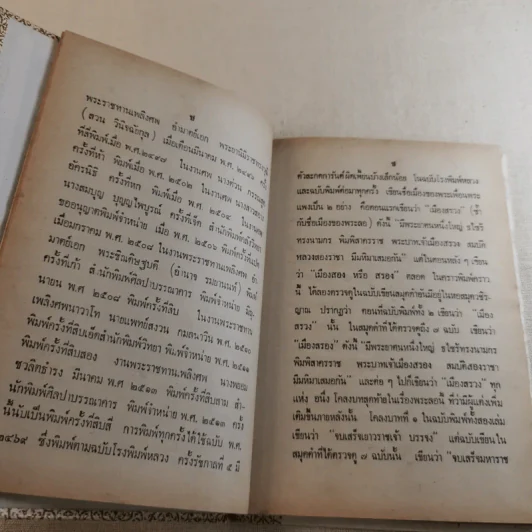 ช
พระราชทานเพลิงศพ อำมาตย์เอก พระยานิมิราชทรง
(สวน วินิจฉัยกุล) เมื่อเดือนมีนาคม พ.ศ. ๒๔๙๖ ครั้ง
ที่สี่พิมพ์เมื่อ พ.ศ. ๒๔๙๗ ในงานศพ นางต่วน
ครั้งที่ห้า พิมพ์เมื่อ พ.ศ. ๒๕๐๒ ในงานศพ
อัครนิธิ ครั้งที่หก พิมพ์เมื่อ พ.ศ. ๒๕๐๔ ในงานศพ
นางสมบุญ บุญญไพบูรณ์ ครั้งที่เจ็ด สำนักพิมพ์คลังวิทยา
ขออนุญาตพิมพ์จำหน่าย เมื่อ พ.ศ. ๒๕๐๖ พิมพ์ครั้งที่แปด
เมื่อมกราคม พ.ศ. ๒๕๐๘ ในงานพระราชทานเพลิงศพ อำ
มาตย์เอก พระยาชิดเศรษฐบดี (อำนาจ รมยานนท์) พิมพ์
ครั้งที่เก้า สำนักพิมพ์ศิลปาบรรณาคาร พิมพ์จำหน่าย
นายน พ.ศ. ๒๕๐๘ พิมพ์ครั้งที่สิบ ในงานพระราชทาน
เพลิงศพนาวาโท นายแพทย์สงวน กมลนาวิน พ.ศ.
พิมพ์ครั้งที่สิบเอ็ดสำนักพิมพ์วิทยา พิมพ์จำหน่าย พ.ศ. ๒๕๑๑
พิมพ์ครั้งที่สิบสอง งานพระราชทานเพลิงศพ นางพยอม
ชวลิตธำรง มีนาคม พ.ศ. ๒๕๑๓ พิมพ์ครั้งที่สิบสาม สำ-
นักพิมพ์ศิลปาบรรณาคาร พิมพ์จำหน่าย พ.ศ. ๒๕๑๓ ครั้ง
นี้นับเป็นพิมพ์ครั้งที่สิบสี่ การพิมพ์ทุกครั้งได้ใช้ฉบับ พ.ศ.
๒๔๖๙ ซึ่งพิมพ์ตามฉบับโรงพิมพ์หลวง ครั้งรัชกาลที่ ๕ มี
ซ
ตัวสะกดการันต์ผิดเพี้ยนบ้างเล็กน้อย ในฉบับโรงพิมพ์หลวง
และฉบับพิมพ์ต่อมาทุกครั้ง เขียนชื่อเมืองของพระเพื่อนพระ
แพงเป็น ๒ อย่าง คือตอนแรกเขียนว่า "เมืองสรวง" (ซ้ำ
กับชื่อเมืองของพระลอ) ดังนี้ "มีพระยาหนึ่งใหญ่ ธไซร้
ทรงนามกร พิมพิสาครราช พระบาทเจ้าเมืองสรวง สมบัติ
หลวงสองราชา มีมหิมาเสมอกัน" แต่ในตอนหลัง ๆ เขียน
ว่า "เมืองสอง หรือ สรอง" ตลอด ในคราวพิมพ์คราว
นี้ ได้ลองตรวจดูในฉบับเขียนสมุดดำอันมีอยู่ในหอสมุดวชิร-
ญาณ ปรากฏว่า ตอนที่ฉบับพิมพ์ทั้ง ๒ เขียนว่า "เมือง
สรวง" นั้น ในสมุดดำที่ได้ตรวจดูถึง ๗ ฉบับ เขียนว่า
"เมืองสรอง" ดังนี้ "มีพระยาคนหนึ่งใหญ่ ธไซร้ทรงนามกร
พิมพิสาครราช พระบาทเจ้าเมืองสรอง สมบัติสองราชา
มีมหิมาเสมอกัน" และต่อ ๆ ไปก็เขียนว่า "เมืองสรวง" ทุก
แห่ง อนึ่ง โคลงบทสุดท้ายในเรื่องพระลอนี้ ที่ว่ามีผู้แต่งเพิ่ม
เติมขึ้นภายหลังนั้น โคลงบาทที่ ๑ ในฉบับพิมพ์ทั้งสองเล่ม
เขียนว่า "จบเสร็จเยาวราชเจ้า บรรจง" แต่ฉบับเขียนใน
สมุดดำที่ได้ตรวจดู ๗ ฉบับนั้น เขียนว่า "จบเสร็จมหาราช